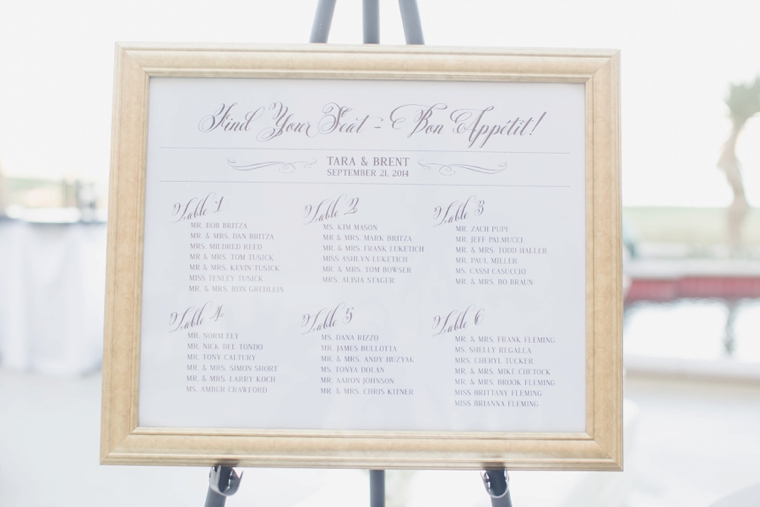 Find Your Seat - Bon Appétit!
TARA & BRENT
SEPTEMBER 21, 2014
Table 1
MR. BOB BRITZA
MR. & MRS. DAN BRITZA
MRS. MILDRED REED
MR & MRS. TOM TUSICK
MR. & MRS. KEVIN TUSICK
MISS TENLEY TUSICK
MR. & MRS. RON GREHLEIN
Table 2
MS. KIM MASON
MR. & MRS. MARK BRITZA
MR. & MRS. FRANK LEKETICH
MISS ASHLYN LEKETICH
MR. & MRS. TOM BOWSER
MRS. ALISIA STAGER
Table 3
MR. ZACH PUPI
MR. JEFF PALMUCCI
MR. & MRS. TODD HALLER
MR. PAUL MILLER
MS. CASSI CASUCCIO
MR. & MRS. BO BRAUN
Table 4
MR. NORM FEY
MR. NICK DEL TONDO
MR. TONY CALTURY
MR. & MRS. SIMON SHORT
MR. & MRS. LARRY KOCH
MS. AMBER CRAWFORD
Table 5
MS. DANA RIZZO
MR. JAMES BULLOTTA
MR. & MRS. ANDY HUZYAK
MS. TONYA DOLAN
MR. AARON JOHNSON
MR. & MRS. CHRIS KIENER
Table 6
MR. & MRS. FRANK FLEMING
MS. SHELLY REGALLA
MRS. CHERYL TUCKER
MR. & MRS. MIKE
MR. & MRS. BROOK FLEMING
MISS BRITTANY FLEMING
MISS BRIANNA FLEMING